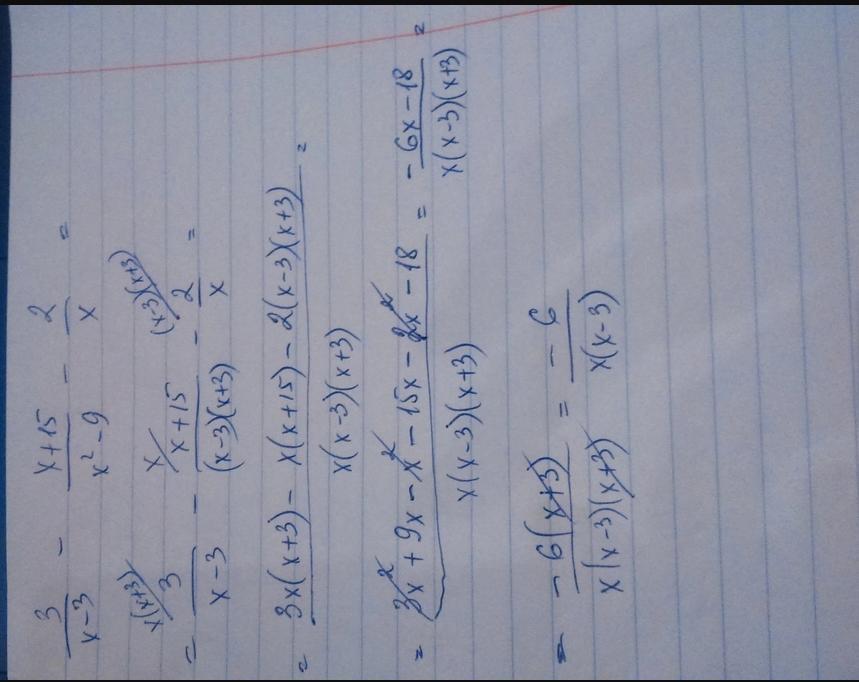 3/(x-3) - (x+15)/(x²-9) - 2/x =
= 3/(x-3) - (x+15)/((x-3)(x+3)) - 2/x = x(x+3) x (x-3)(x+3)
= (3x(x+3) - x(x+15) - 2(x-3)(x+3))/(x(x-3)(x+3)) =
= (3x² + 9x - x² - 15x - 2x² - 18)/(x(x-3)(x+3)) = (-6x-18)/(x(x-3)(x+3)) =
= -6(x+3)/(x(x-3)(x+3)) = -6/(x(x-3))